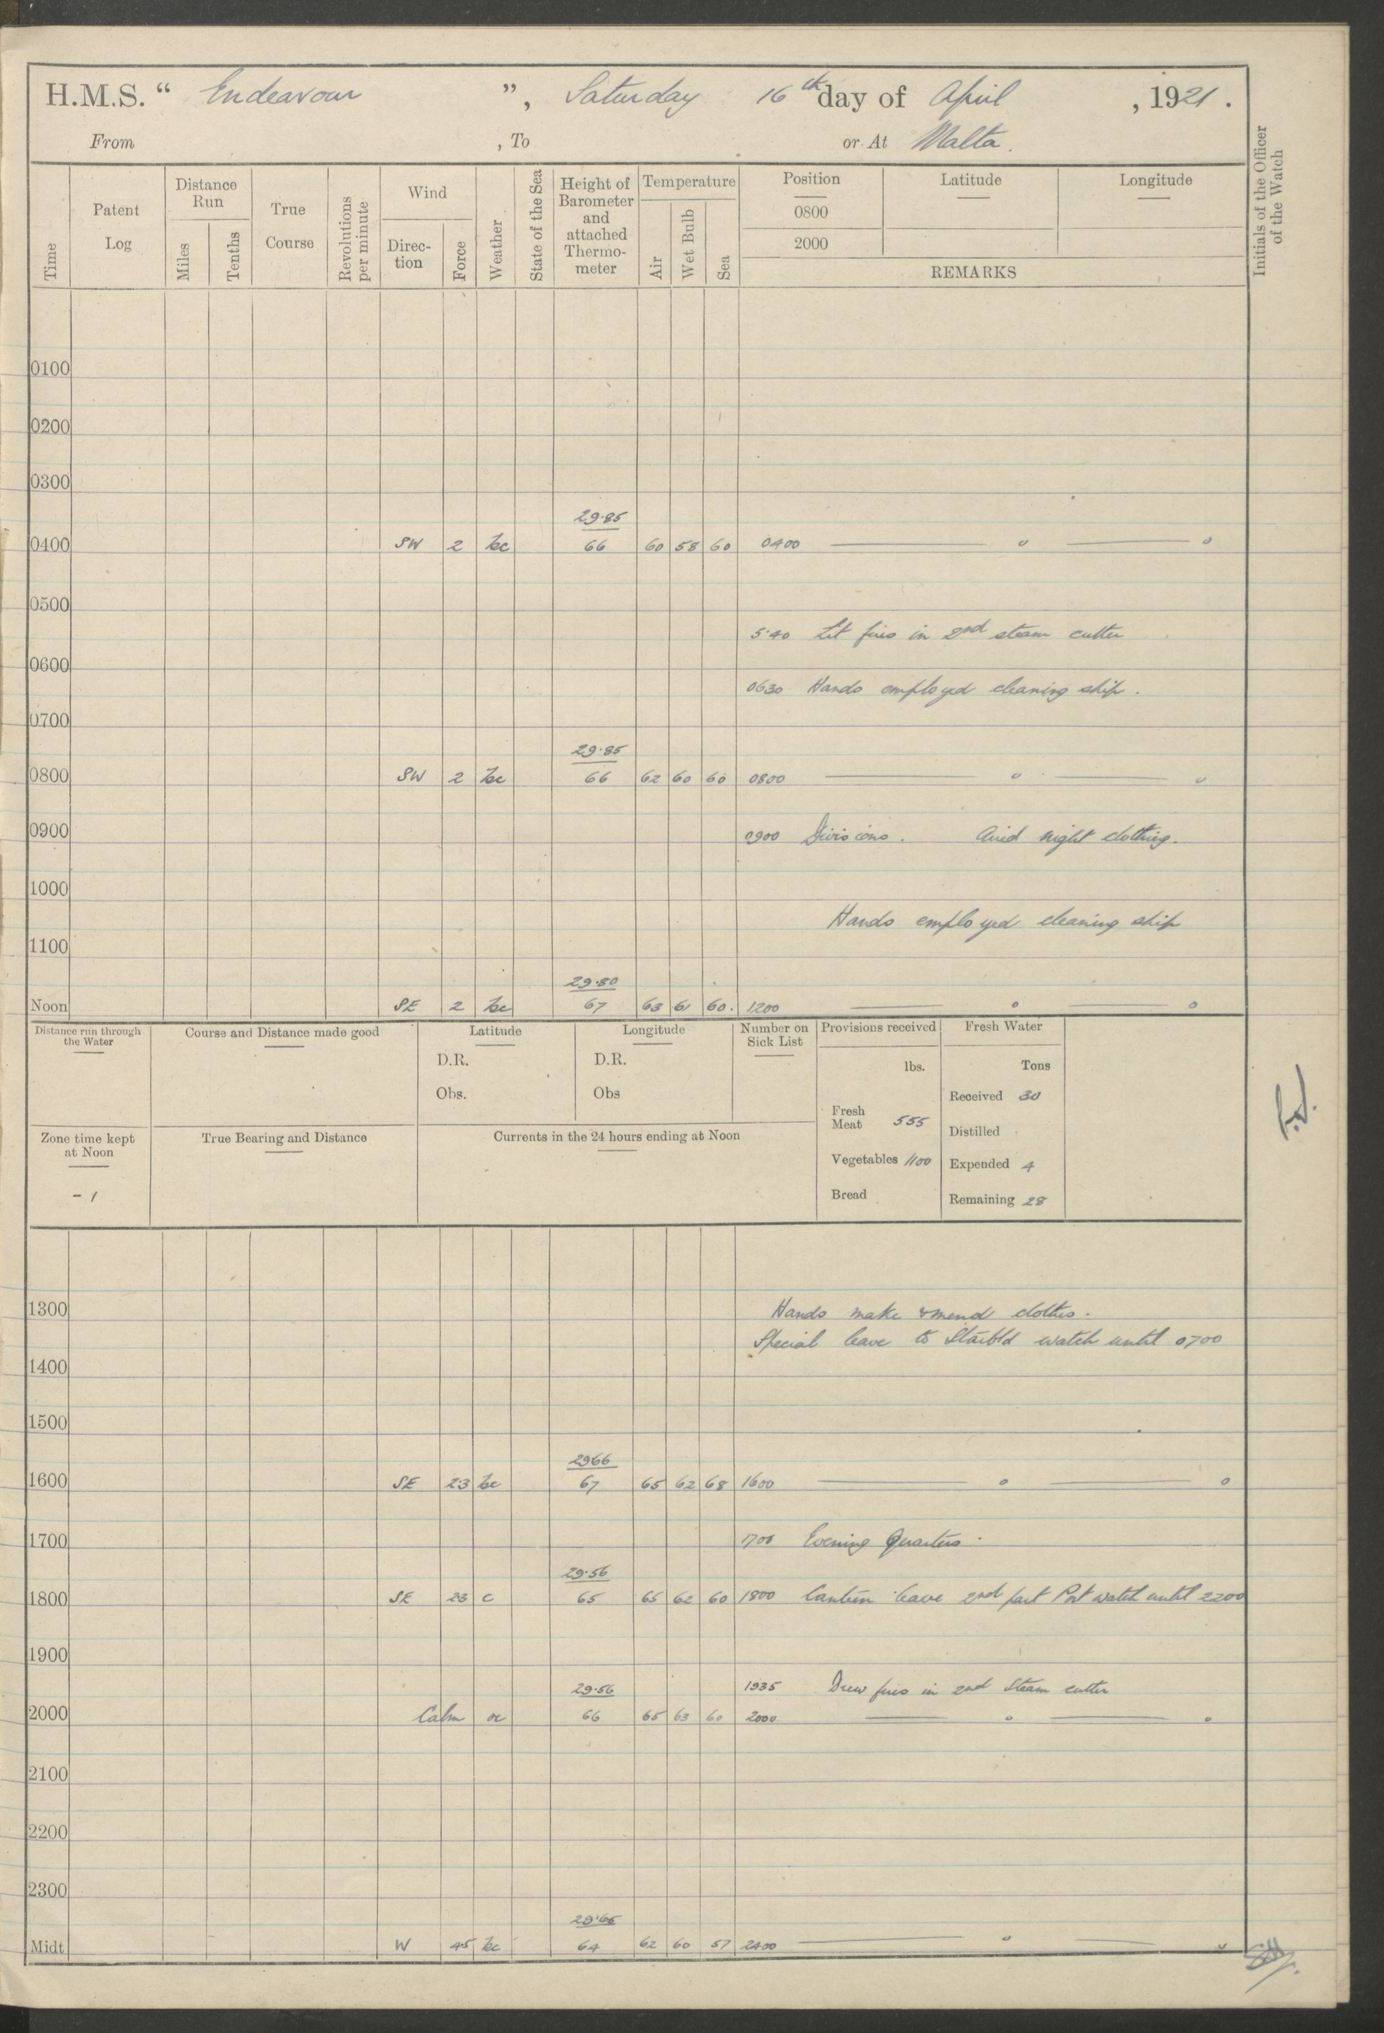 H.M.S. “ Endeavour ”, Saturday 16th day of April , 1921 .
From , To or At Malta.
Time Patent Log Distance Run Miles Tenths True Course Revolutions per minute Wind Direc-tion Force Weather State of the Sea Height of Barometer and attached Thermo-meter Temperature Air Wet Bulb Sea Position 0800 2000 Latitude Longitude Initials of the Officer of the Watch
REMARKS
0100
0200
0300
29.85
0400 SW 2 bc 66 60 58 60 0400
0500
5.40 Lit fires in 2nd steam cutter
0600
0630 Hands employed cleaning ship.
0700
29.85
0800 SW 2 bc 66 62 60 60 0800
0900 0900 Divisions. Aired night clothing.
1000
Hands employed cleaning ship
1100
29.80
Noon SE 2 bc 67 63 61 60. 1200
Distance run through the Water Course and Distance made good Latitude Longitude Number on Sick List Provisions received Fresh Water
D.R. D.R. lbs. Tons
Obs. Obs Received 30
Fresh Meat 555 Distilled
Zone time kept at Noon True Bearing and Distance Currents in the 24 hours ending at Noon
Vegetables 1100 Expended 4
- 1 Bread Remaining 28
1300 Hands make & mend clothes.
Special leave to Starbd watch until 0700
1400
1500
2966
1600 SE 23 bc 67 65 62 68 1600
1700 1700 Evening Quarters.
29.56
1800 SE 23 c 65 65 62 60 1800 Canteen leave 2nd part Port watch until 2200
1900
29.56 1935 Drew fires in 2nd Steam cutter
2000 Calm oc 66 65 63 60 2000
2100
2200
2300
29.65
Midt W 45 bc 64 62 60 57 2400